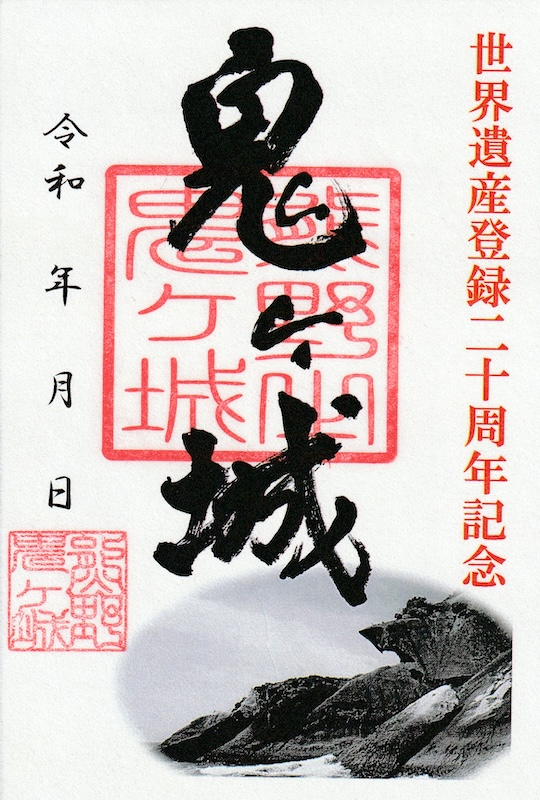 世界遺産登録二十周年記念
鬼ヶ城
熊野
鬼ケ城
令和 年 月 日
熊野
鬼ケ城